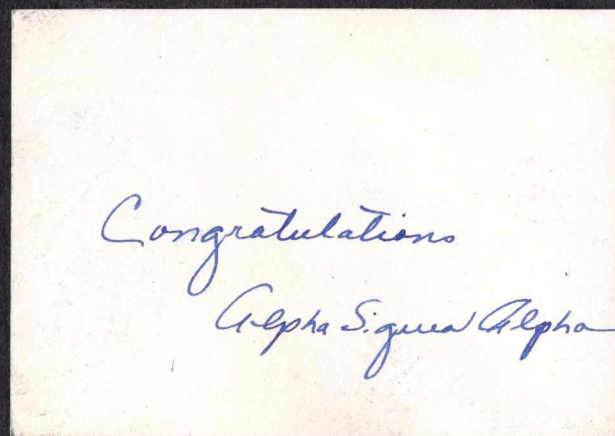 Congratulations
Alpha Sigma Alpha